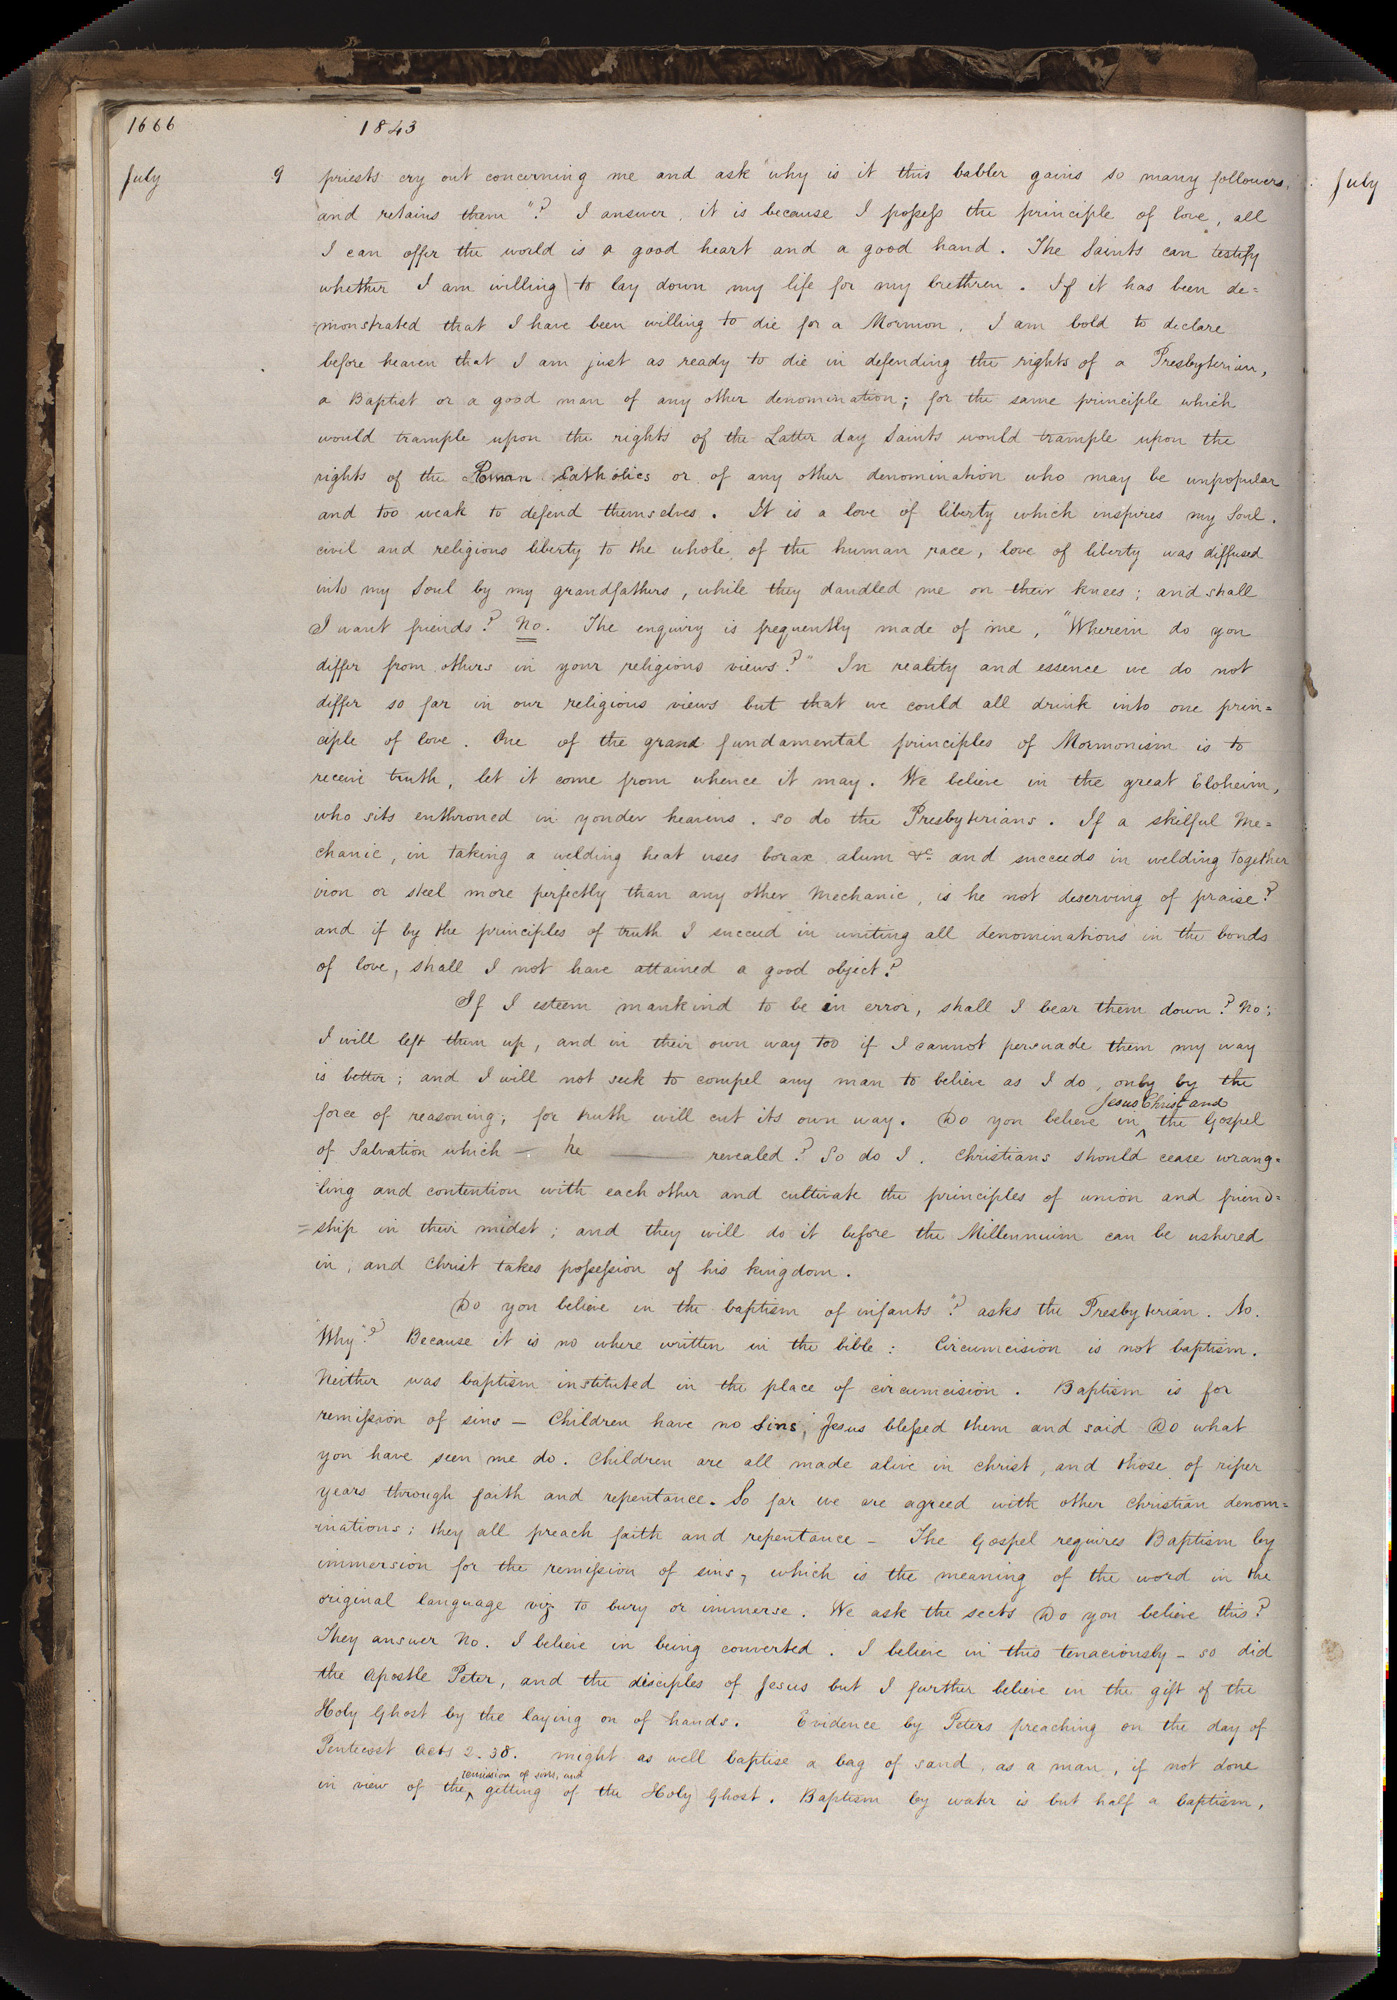 1666 1843
July 9 priests cry out concerning me and ask "why is it this babler gains so many followers,
and retains them"? I answer, it is because I possess the principle of love, all
I can offer the world is a good heart and a good hand. The Saints can testify
whether I am willing to lay down my life for my brethren. If it has been de=
=monstrated that I have been willing to die for a Mormon, I am bold to declare
before heaven that I am just as ready to die in defending the rights of a Presbyterian,
a Baptist or a good man of any other denomination; for the same principle which
would trample upon the rights of the Latter day Saints would trample upon the
rights of the Roman Catholics or of any other denomination who may be unpopular
and too weak to defend themselves. It is a love of liberty which inspires my Soul.
civil and religious liberty to the whole of the human race, love of liberty was diffused
into my Soul by my grandfathers, while they dandled me on their knees; and shall
I want friends? No. The enquiry is frequently made of me, "Wherein do you
differ from others in your religious views?" In reality and essence we do not
differ so far in our religious views but that we could all drink into one prin=
ciple of love. One of the grand fundamental principles of Mormonism is to
receive truth, let it come from whence it may. We believe in the great Eloheim,
who sits enthroned in yonder heavens. so do the Presbyterians. If a skilful Me=
chanic, in taking a welding heat uses borax alum &c and succeeds in welding together
iron or steel more perfectly than any other Mechanic, is he not deserving of praise?
and if by the principles of truth I succeed in uniting all denominations in the bonds
of love, shall I not have attained a good object?
If I esteem mankind to be in error, shall I bear them down? No;
I will left them up, and in their own way too if I cannot persuade them my way
is better; and I will not seek to compel any man to believe as I do, only by the
force of reasoning; for truth will cut its own way. Do you believe in ^ Jesus Christ and the Gospel
of Salvation which — he —— revealed? So do I. Christians should cease wrang=
ling and contention with each other and cultivate the principles of union and friend=
=ship in their midst; and they will do it before the Millennium can be ushered
in, and Christ takes possession of his kingdom.
Do you believe in the baptism of infants"? asks the Presbyterian. No.
"Why"? Because it is no where written in the bible: Circumcision is not baptism.
Neither was baptism instituted in the place of circumcision. Baptism is for
remission of sins — Children have no Sins, Jesus blessed them and said Do what
you have seen me do. Children are all made alive in Christ, and those of riper
years through faith and repentance. So far we are agreed with other Christian denom=
inations; they all preach faith and repentance — The Gospel requires Baptism by
immersion for the remission of sins, which is the meaning of the word in the
original language viz to bury or immerse. We ask the sects Do you believe this?
They answer No. I believe in being converted. I believe in this tenaciously — so did
the Apostle Peter, and the disciples of Jesus but I further believe in the gift of the
Holy Ghost by the laying on of hands. Evidence by Peters preaching on the day of
Pentecost Acts 2. 38. might as well baptise a bag of sand, as a man, if not done
in view of the ^ remission of sins, and getting of the Holy Ghost. Baptism by water is but half a baptism,
July